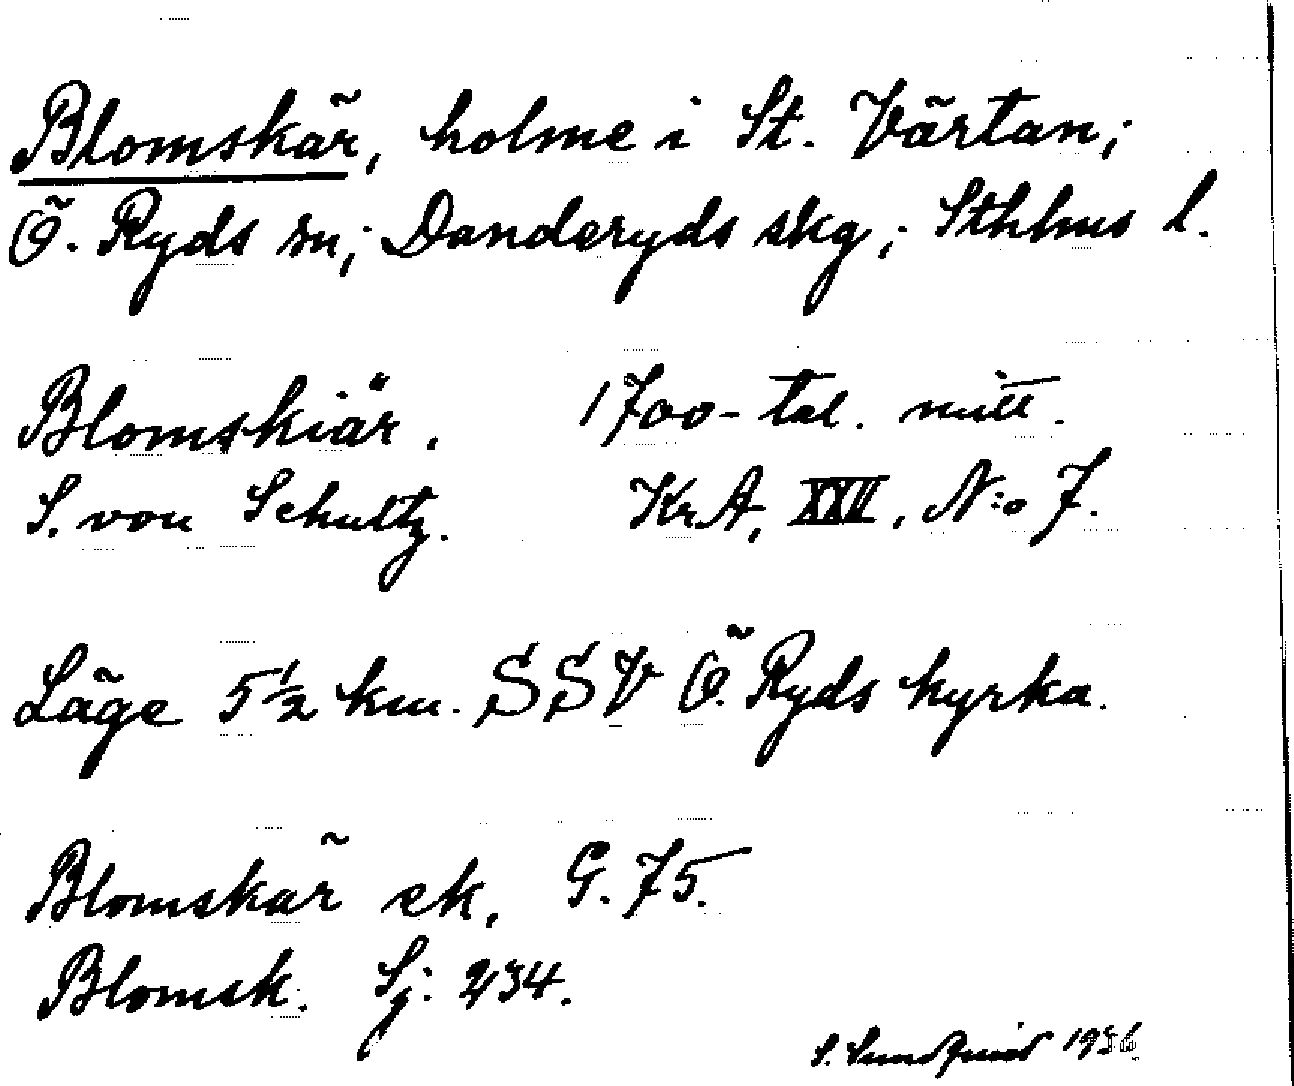 Blomskär, holme i St. Värtan;
Ö. Ryds sn; Danderyds skg; Sthlms l.
Blomskiär. 1700-tal. mitt.
S. von Schultz. KrA, XXII, N:o 7.
Läge 5½ km. SSV Ö. Ryds kyrka.
Blomskär ek, G. 75.
Blomsk. Sj: 234.
S. Sundqvist 1936